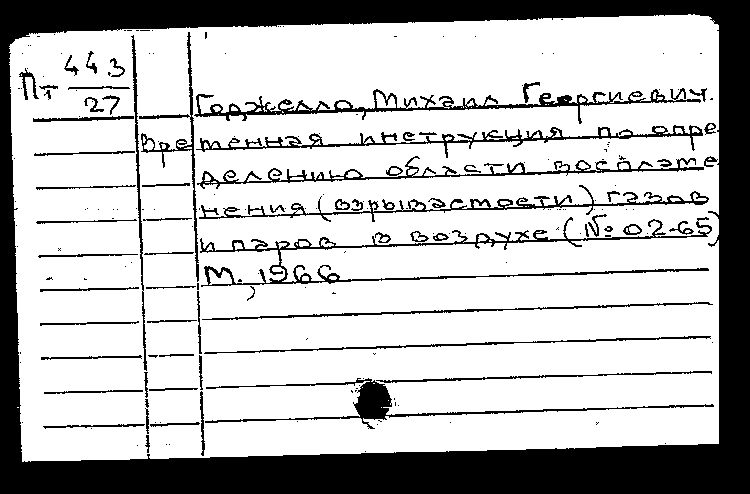 Пт 443/27
Годжелло, Михаил Георгиевич.
Временная инструкция по опре
делению области воспламе
нения (взрываемости) газов
и паров в воздухе (№ 02-65)
М., 1966